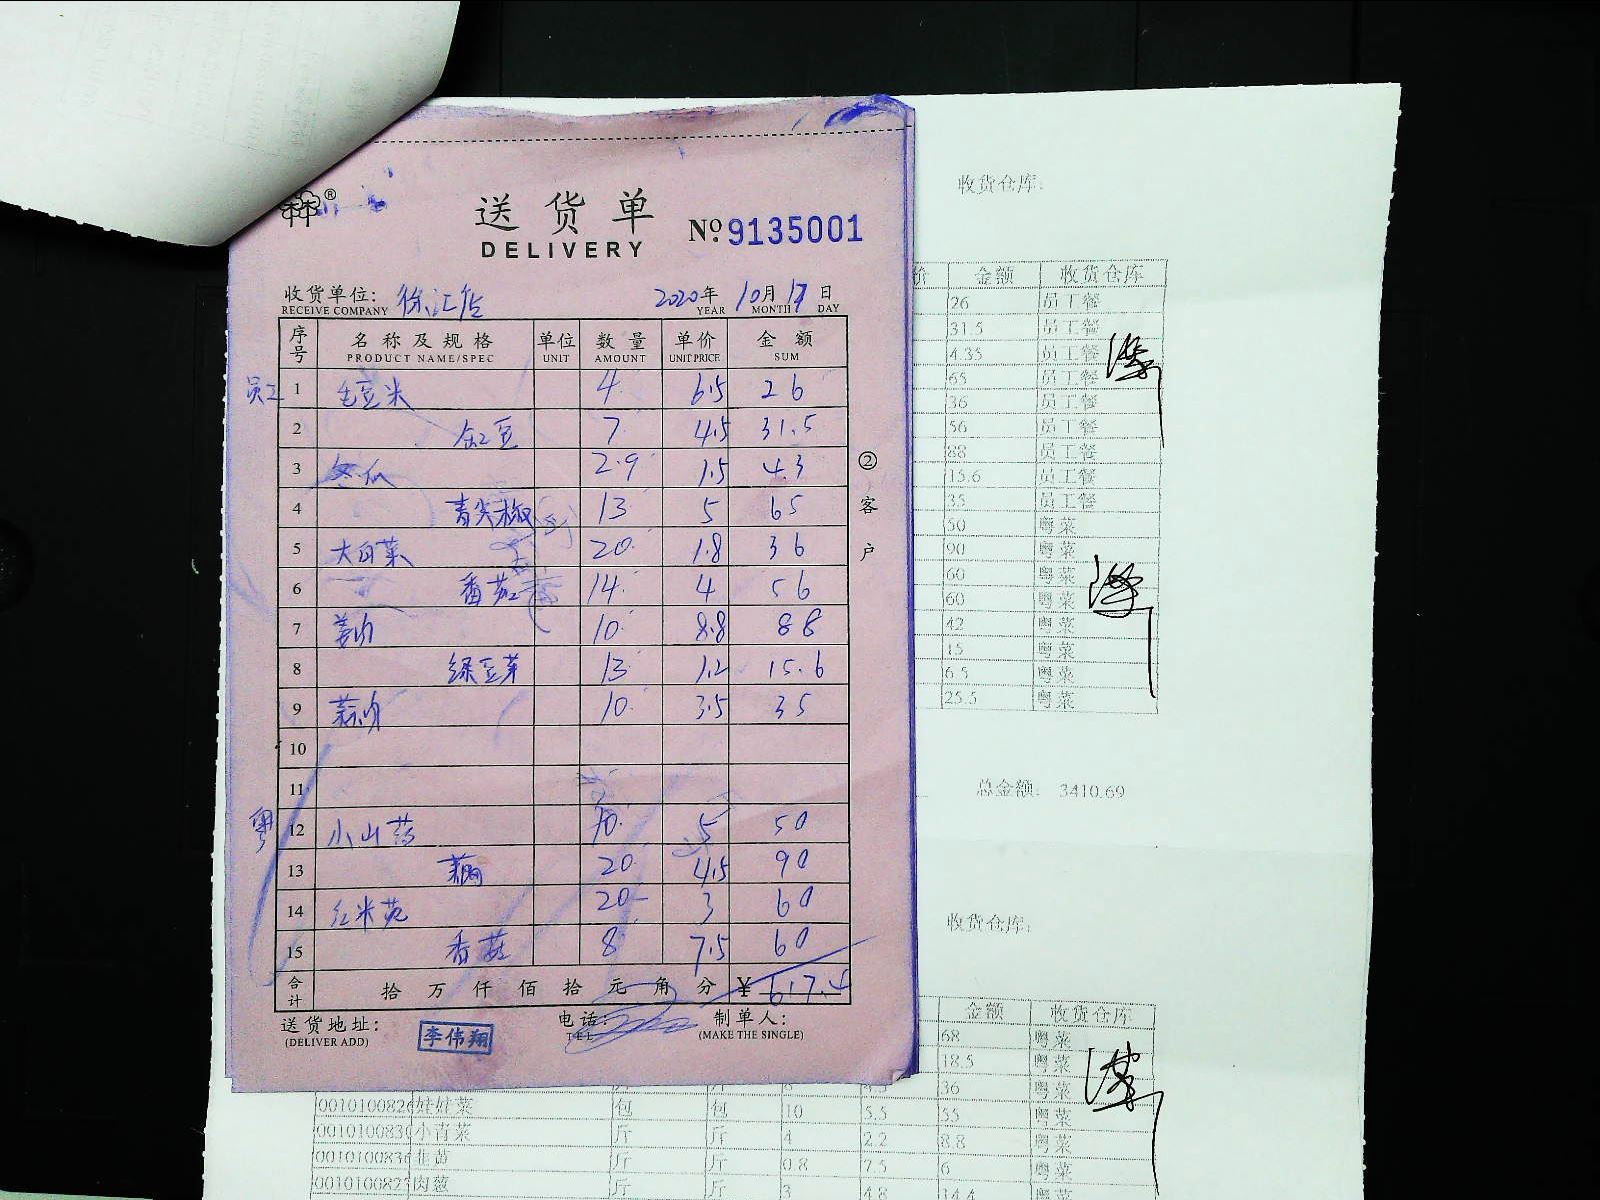 送货单
DELIVERY
No. 9135001
收货单位: 徐汇店 2020年 10月 17日
RECEIVE COMPANY YEAR MONTH DAY
序号 名称及规格 单位 数量 单价 金额
PRODUCT NAME/SPEC UNIT AMOUNT UNIT PRICE SUM
员工 1 毛豆米 4 6.5 26
2 缸豆 7 4.5 31.5
3 冬瓜 2.9 1.5 4.3
4 青尖椒 13 5 65
5 大白菜 20 1.8 36
6 番茄 14 4 56
7 姜肉 10 8.8 88
8 绿豆芽 13 1.2 15.6
9 蒜肉 10 3.5 35
10
11
粤 12 小山药 10 5 50
13 藕 20 4.5 90
14 红米苋 20 3 60
15 香菇 8 7.5 60
合计 拾 万 仟 佰 拾 元 角 分 ¥ 617.4
送货地址: 李伟翔 电话: 制单人:
(DELIVER ADD) TEL (MAKE THE SINGLE)
②客户
收货仓库:
价 金额 收货仓库
26 员工餐
31.5 员工餐
4.35 员工餐
65 员工餐
36 员工餐
56 员工餐
88 员工餐
15.6 员工餐
35 员工餐
50 粤菜
90 粤菜
60 粤菜
60 粤菜
42 粤菜
15 粤菜
6.5 粤菜
25.5 粤菜
总金额: 3410.69
收货仓库:
金额 收货仓库
68 粤菜
18.5 粤菜
36 粤菜
娃娃菜 包 包 10 5.5 55 粤菜
小青菜 斤 斤 4 2.2 8.8 粤菜
韭苗 斤 斤 0.8 7.5 6 粤菜
肉葱 斤 斤 3 4.8 14.4 粤菜